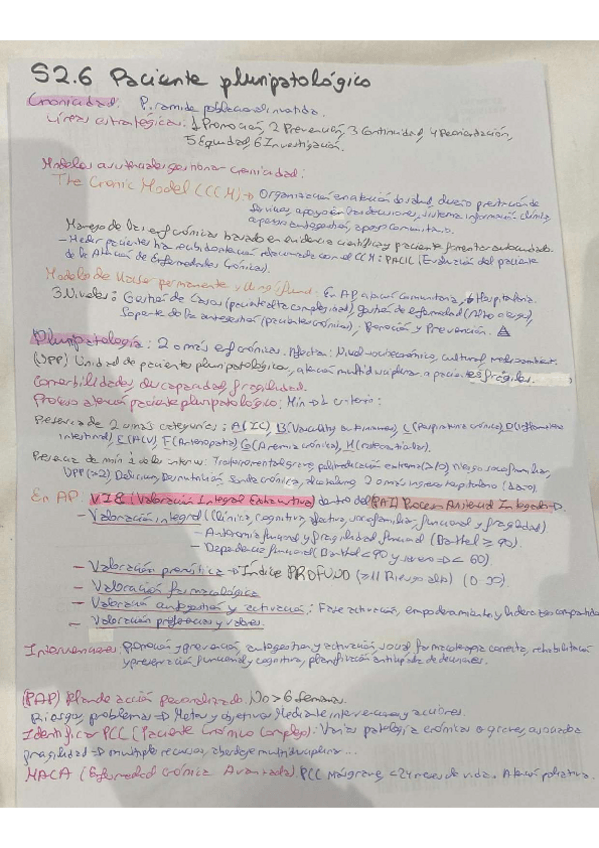 S2.6 Paciente pluripatológico
Cronicidad: Pirámide poblacional invertida.
Líneas estratégicas: 1 Promoción, 2 Prevención, 3 Continuidad, 4 Reorientación,
5 Equidad, 6 Investigación.
Modelos gestionar cronicidad:
The Cronic Model (CCM) → Organización en atención de salud, diseño prestación de
servicios, apoyo en las decisiones, sistema información clínica,
apoyo autogestión, apoyo comunitario.
Manejo de las enf crónicas basado en evidencia científica y paciente fomentar autocuidado
- Medir pacientes han recibido atención relacionada con el CCM: PACIC (Evaluación del paciente
de la Atención de Enfermedades Crónicas).
Modelo de Kaiser permanente y King's fund. En AP, atención Comunitaria, Hospitalaria.
3 Niveles: Gestión de Casos (paciente alta complejidad), gestión de enfermedad (Alto riesgo),
Soporte de la autogestión (paciente crónico), Promoción y Prevención. △
Pluripatología: 2 o más enf crónicas. Afectan: Nivel socioeconómico, cultural, medioambient.
(UPP) Unidad de pacientes pluripatológicos, atención multidisciplinar a pacientes frágiles.
Comorbilidades, discapacidad, fragilidad.
Proceso atención paciente pluripatológico: Min → 1 criterio:
Presencia de 2 o más categorías: A (IC), B (Vasculitis), C (Respiratoria crónica), D (Inflamatoria
intestinal), E (ACV), F (Arteriopatía) G (Anemia crónica), H (osteoarticular).
Presencia de min 1 de los criterios: polimedicación extrema (≥10) riesgo sociofamiliar,
UPP (>2) Delirium, Desnutrición, Sonda crónica, alcoholismo, 2 o más ingresos hospitalarios (año).
En AP: VIE (Valoración Integral Exhaustiva) dentro del (PAI) Proceso Asistencial Integrado
- Valoración integral (Clínica, cognitiva, afectiva, sociofamiliar, funcional y fragilidad)
- Autonomía funcional y fragilidad funcional (Barthel ≥ 90).
- Dependencia funcional (Barthel < 90 y severo → < 60)
- Valoración pronóstica → Índice PROFUND (≥11 Riesgo alto) (0-30).
- Valoración farmacológica
- Valoración autogestión y activación: Fase activación, empoderamiento y liderazgo compartido
- Valoración preferencias y valores.
Intervenciones: Promoción y prevención, autogestión y activación, social, farmacoterapia correcta, rehabilitación
y preservación funcional y cognitiva, planificación anticipada de decisiones.
(PAP) Plan de acción personalizado. No > 6 semanas.
Riesgos, problemas ⇒ Metas y objetivos Mediante intervenciones y acciones.
Identificar PCC (Paciente Crónico Complejo): Varias patología crónicas o graves, avanzada
fragilidad ⇒ multiple recursos, abordaje multidisciplinar...
MACA (Enfermedad Crónica Avanzada). PCC más grave, <24 meses de vida. Atención paliativa.